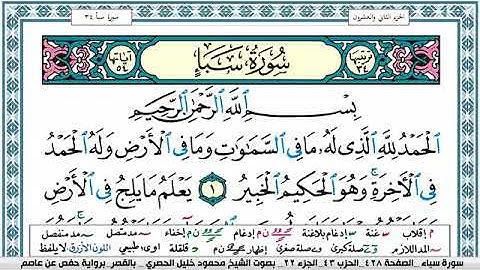 الجزء الثاني والعشرون
سورة سبأ ٣٤
ترتيبها ٣٤
سُورَةُ سَبَإٍ
آياتها ٥٤
بِسْمِ ٱللَّهِ ٱلرَّحْمَٰنِ ٱلرَّحِيمِ
ٱلْحَمْدُ لِلَّهِ ٱلَّذِى لَهُۥ مَا فِى ٱلسَّمَٰوَٰتِ وَمَا فِى ٱلْأَرْضِ وَلَهُ ٱلْحَمْدُ
فِى ٱلْءَاخِرَةِ ۚ وَهُوَ ٱلْحَكِيمُ ٱلْخَبِيرُ ١ يَعْلَمُ مَا يَلِجُ فِى ٱلْأَرْضِ
م إقلاب غنة إدغام بلاغنة ن م إدغام ن م إخفاء مد متصل مد منفصل
المد اللازم صلة كبرى وصلة صغرى إظهار ن م قلقلة اوى طبيعي اللون الأزرق لا يلفظ
سورة سباء _الصفحة ٤٢٨_ الحزب ٤٣_ الجزء ٢٢_ بصوت الشيخ محمود خليل الحصري _ بالقصر_برواية حفص عن عاصم